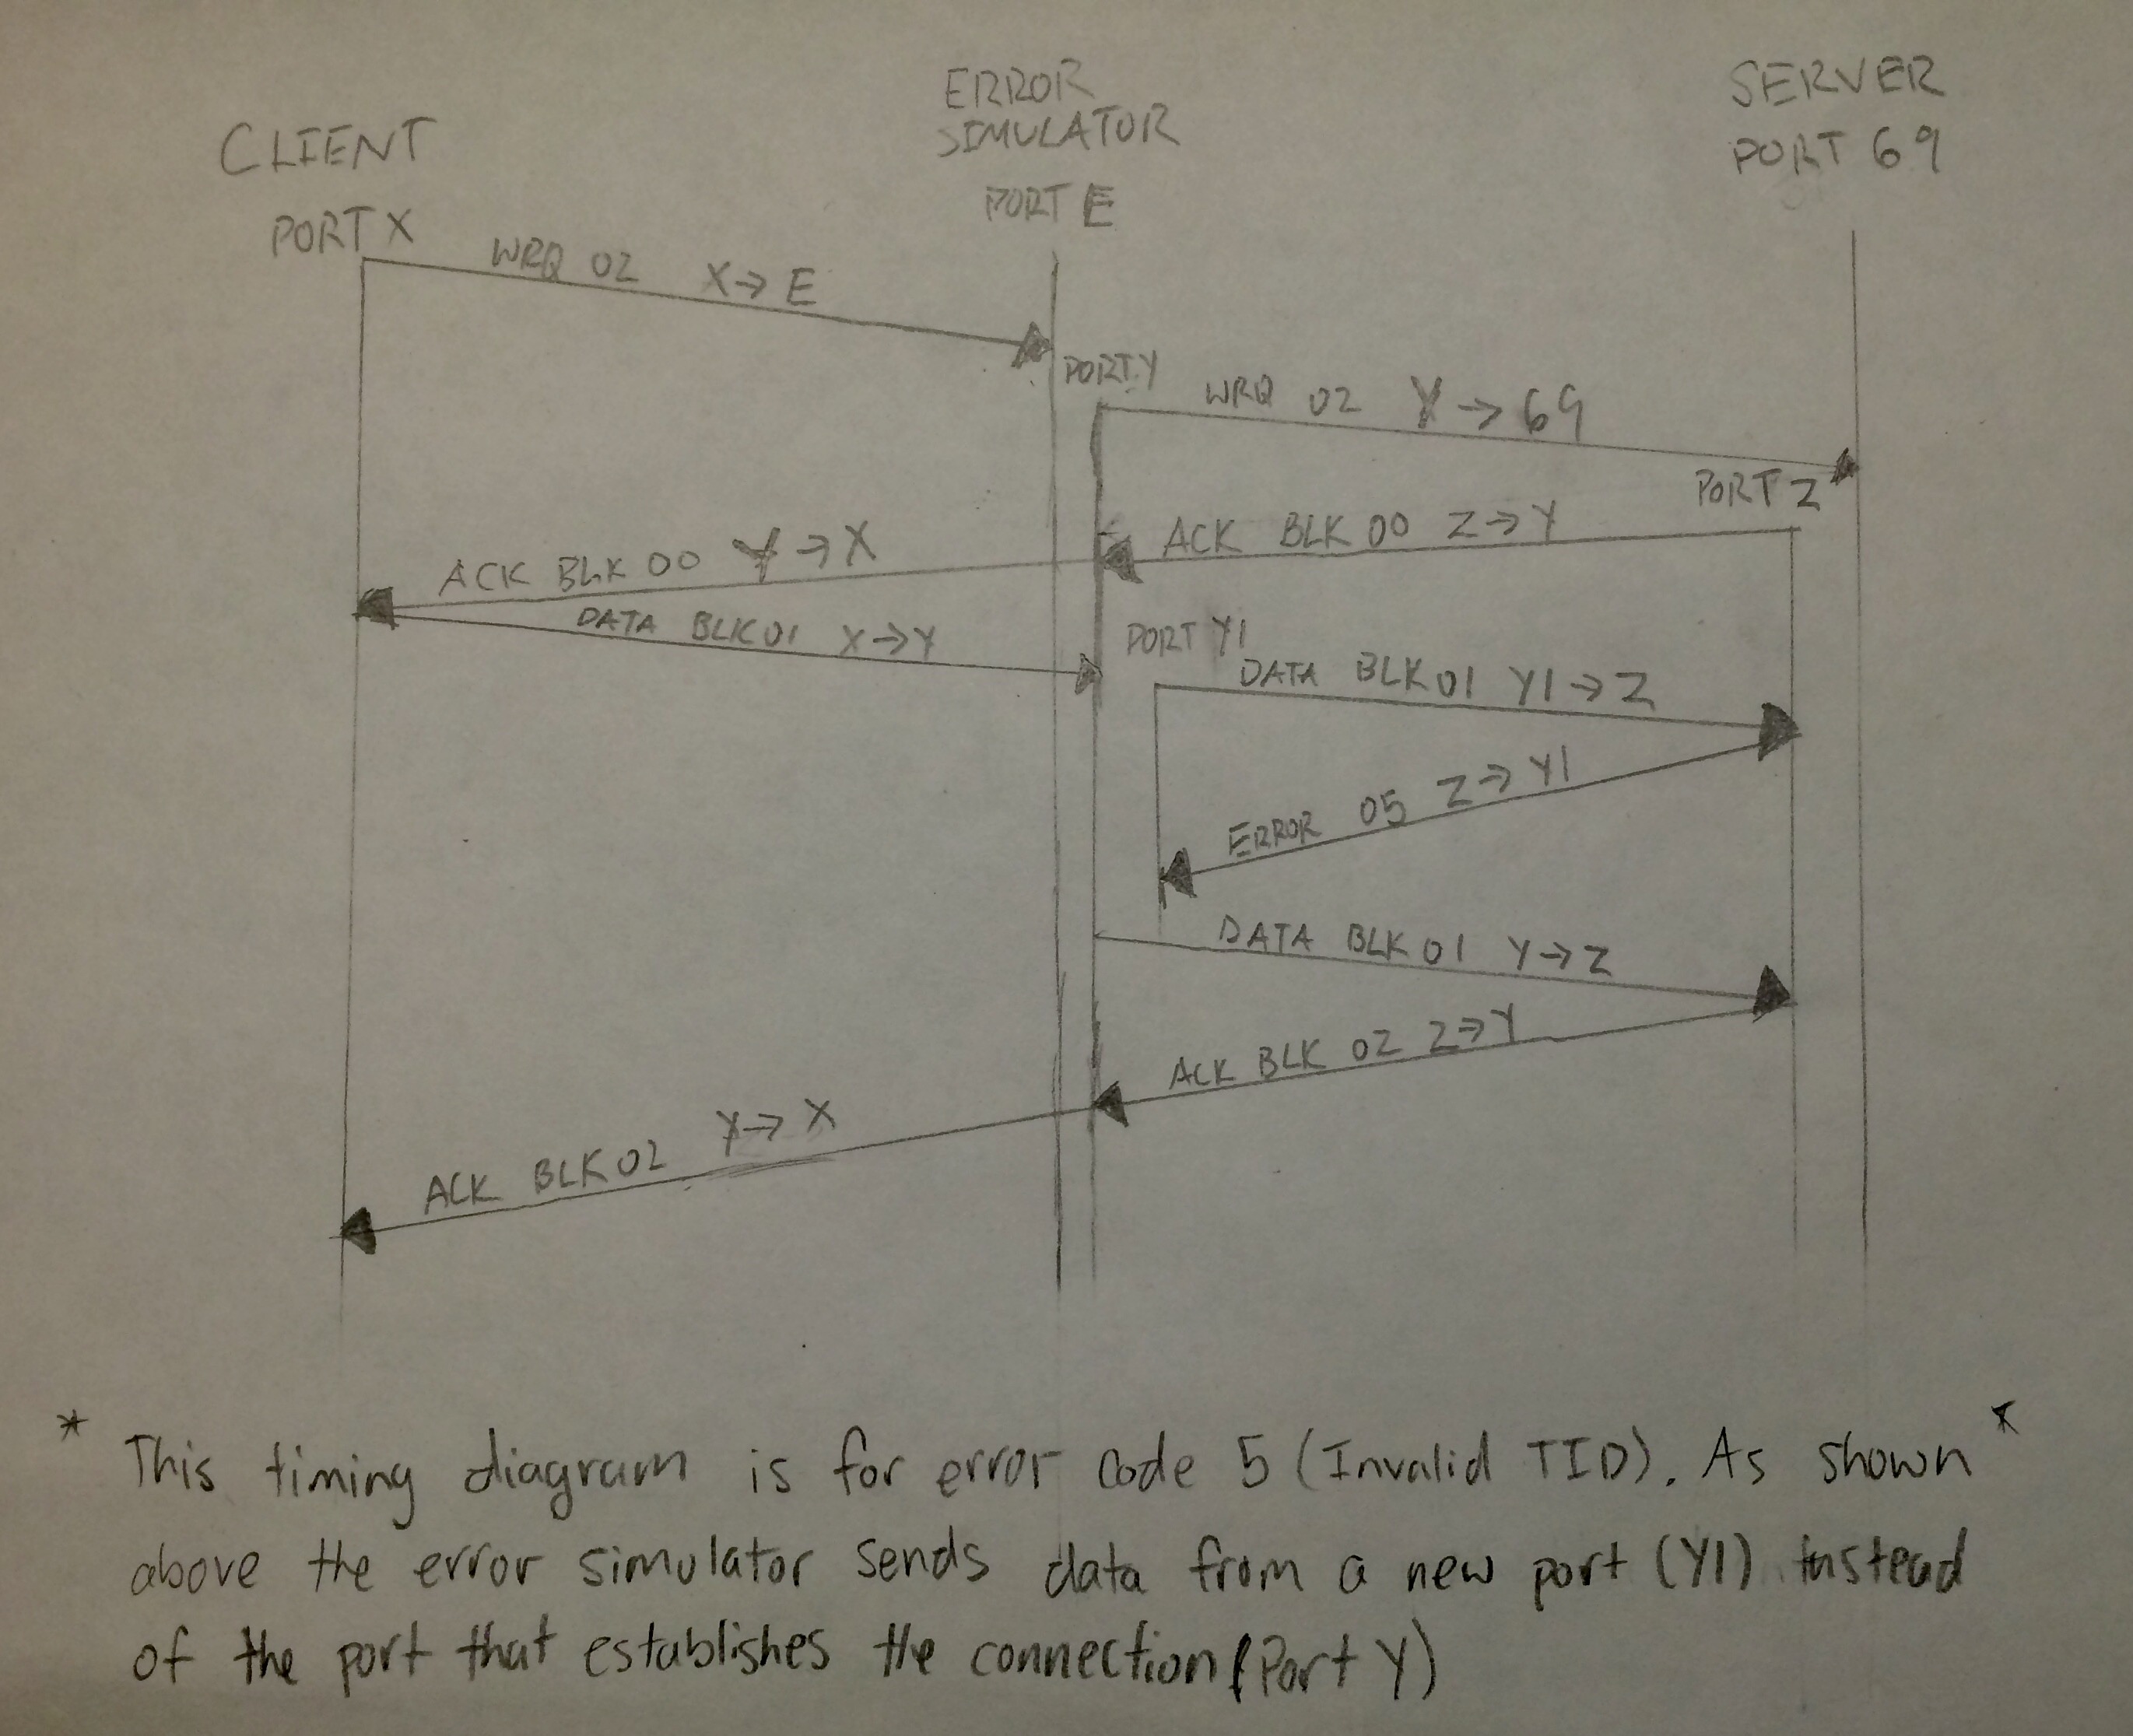 ERROR
SIMULATOR
PORT E
SERVER
PORT 69
CLIENT
PORT X
WRQ 02 X→E
PORT Y
WRQ 02 Y→69
PORT Z
ACK BLK 00 Z→Y
ACK BLK 00 Y→X
DATA BLK 01 X→Y
PORT Y1
DATA BLK 01 Y1→Z
ERROR 05 Z→Y1
DATA BLK 01 Y→Z
ACK BLK 02 Z→Y
ACK BLK 02 Y→X
* This timing diagram is for error code 5 (Invalid TID). As shown *
above the error simulator sends data from a new port (Y1) instead
of the port that establishes the connection (Port Y)